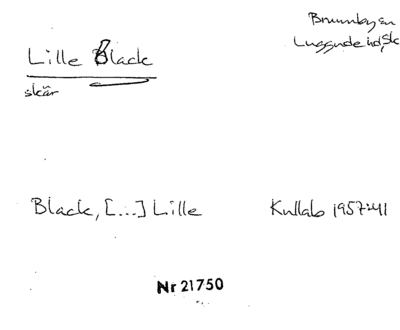 Lille Black
Brunnby sn
Luggude hd, Sk
skär
Black, [...] Lille
Kullab 1957:41
Nr 21750